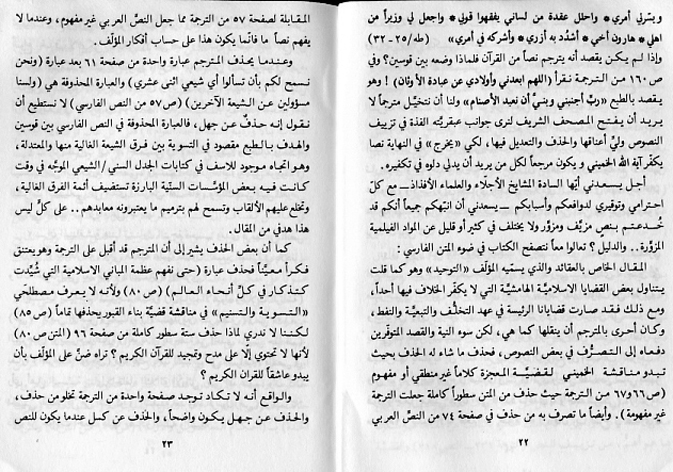 ويسّرلي أمري* واحلل عقدة من لساني يفقهوا قولي* واجعل لي وزيراً من
اهلي* هارون أخي* أشدُد به أزري* وأشركه في أمري» (طه/٢٥ – ٣٢)
وإذا لم يكن يقصد أنه يترجم نصاً من القرآن فلماذا وضعه بين قوسين؟ وفي
ص ١٦٠ من الترجمة نقرأ (اللهم ابعدني وأولادي عن عبادة الأوثان) ! وهو
يقصد بالطبع «ربِّ أجنبني وبنيَّ أن نعبد الأصنام» ولنا أن نتخيَّل مترجماً لا
يريد أن يفتح المصحف الشريف لنرى جوانب عبقريّته الفذة في تزييف
النصوص وليّ أعناقها والحذف والتعديل فيها، لكي «يخرج» في النهاية نصا
يكفّر آية الله الخميني و يكون مرجعاً لكل من يريد أن يدلي دلوه في تكفيره.
أجل يسعدني أيّها السادة المشايخ الأجلّاء والعلماء الأفذاذ — مع كلّ
احترامي وتوقيري لدوافعكم وأسبابكم — يسعدني أن انبّهكم جميعاً أنكم قد
خُدعتم بنص مزيَّف ومزوَّر ولا يختلف في كثير أو قليل عن المواد الفيلمية
المزوَّرة.. والدليل؟ تعالوا معاً نتصفح الكتاب في ضوء النص الفارسي :
المقال الخاص بالعقائد والذي يسمّيه المؤلّف «التوحيد» وهو كما قلت
يتناول بعض القضايا الاسلاميّة الهامشيَّة التي لا يكفّر الخلاف فيها أحداً،
ومع ذلك فقد صارت قضايانا الرئيسة في عهد التخلُّف والتبعيَّة والنفط،
وكان أحرى بالمترجم أن ينقلها كما هي، لكن سوء النية والقصد المتوفّرين
دفعاه إلى التصرُّف في بعض النصوص، فحذف ما شاء له الحذف بحيث
تبدو مناقشة الخميني لقضيَّة المعجزة كلاماً غير منطقي أو مفهوم
(ص ٦٦و٦٧ من الترجمة حيث حذف من المتن سطوراً كاملة جعلت الترجمة
غير مفهومة). وأيضاً ما تصرف به من حذف في صفحة ٧٤ من النصّ العربي
٢٢
المقابلة لصفحة ٥٧ من الترجمة مما جعل النصّ العربي غير مفهوم، وعندما لا
يفهم نصاً ما فانما يكون هذا على حساب أفكار المؤلّف.
وعندما يحذف المترجم عبارة واحدة من صفحة ٦١ بعد عبارة (ونحن
نسمح لكم بأن تسألوا أي شيعي اثنى عشري) والعبارة المحذوفة هي (ولسنا
مسؤولين عن الشيعة الآخرين) (ص ٥٧ من النص الفارسي) لا نستطيع أن
نقول إنه حذفٌ عن جهل، فالعبارة المحذوفة في النص الفارسي بين قوسين
والهدف بالطبع مقصود في التسوية بين فرق الشيعة الغالية منها والمعتدلة،
وهو اتجاه موجود للاسف في كتابات الجدل السني/الشيعي الموجَّه في وقت
كانت فيه بعض المؤسَّسات السنّية البارزة تستضيف أئمة الفرق الغالية،
وتخلع عليهم الألقاب وتسمح لهم بترميم ما يعتبرونه معابدهم.. على كلٍّ ليس
هذا هدفي من المقال.
كما أن بعض الحذف يشير إلى أن المترجم قد أقبل على الترجمة وهو يعتنق
فكراً معيَّناً فحذف عبارة (حتى نفهم عظمة المباني الاسلامية التي شُيِّدت
كتذكار في كلّ أنحاء العالم) (ص ٨٠) ولأنه لا يعرف مصطلحَي
«التسوية والتسنيم» في مناقشة قضيّة بناء القبور يحذفها تماماً (ص ٨٥)
لكننا لا ندري لماذا حذف ستة سطور كاملة من صفحة ٩٦ (المتن ص ٨٠)
لأنها لا تحتوي إلّا على مدح وتمجيد للقرآن الكريم ؟ تراه ضنَّ على المؤلّف بأن
يبدو عاشقاً للقران الكريم ؟
والواقع أنه لا تكاد توجد صفحة واحدة من الترجمة تخلو من حذف،
والحذف عن جهل يكون واضحاً، والحذف عن كسل عندما يكون للنص
٢٣